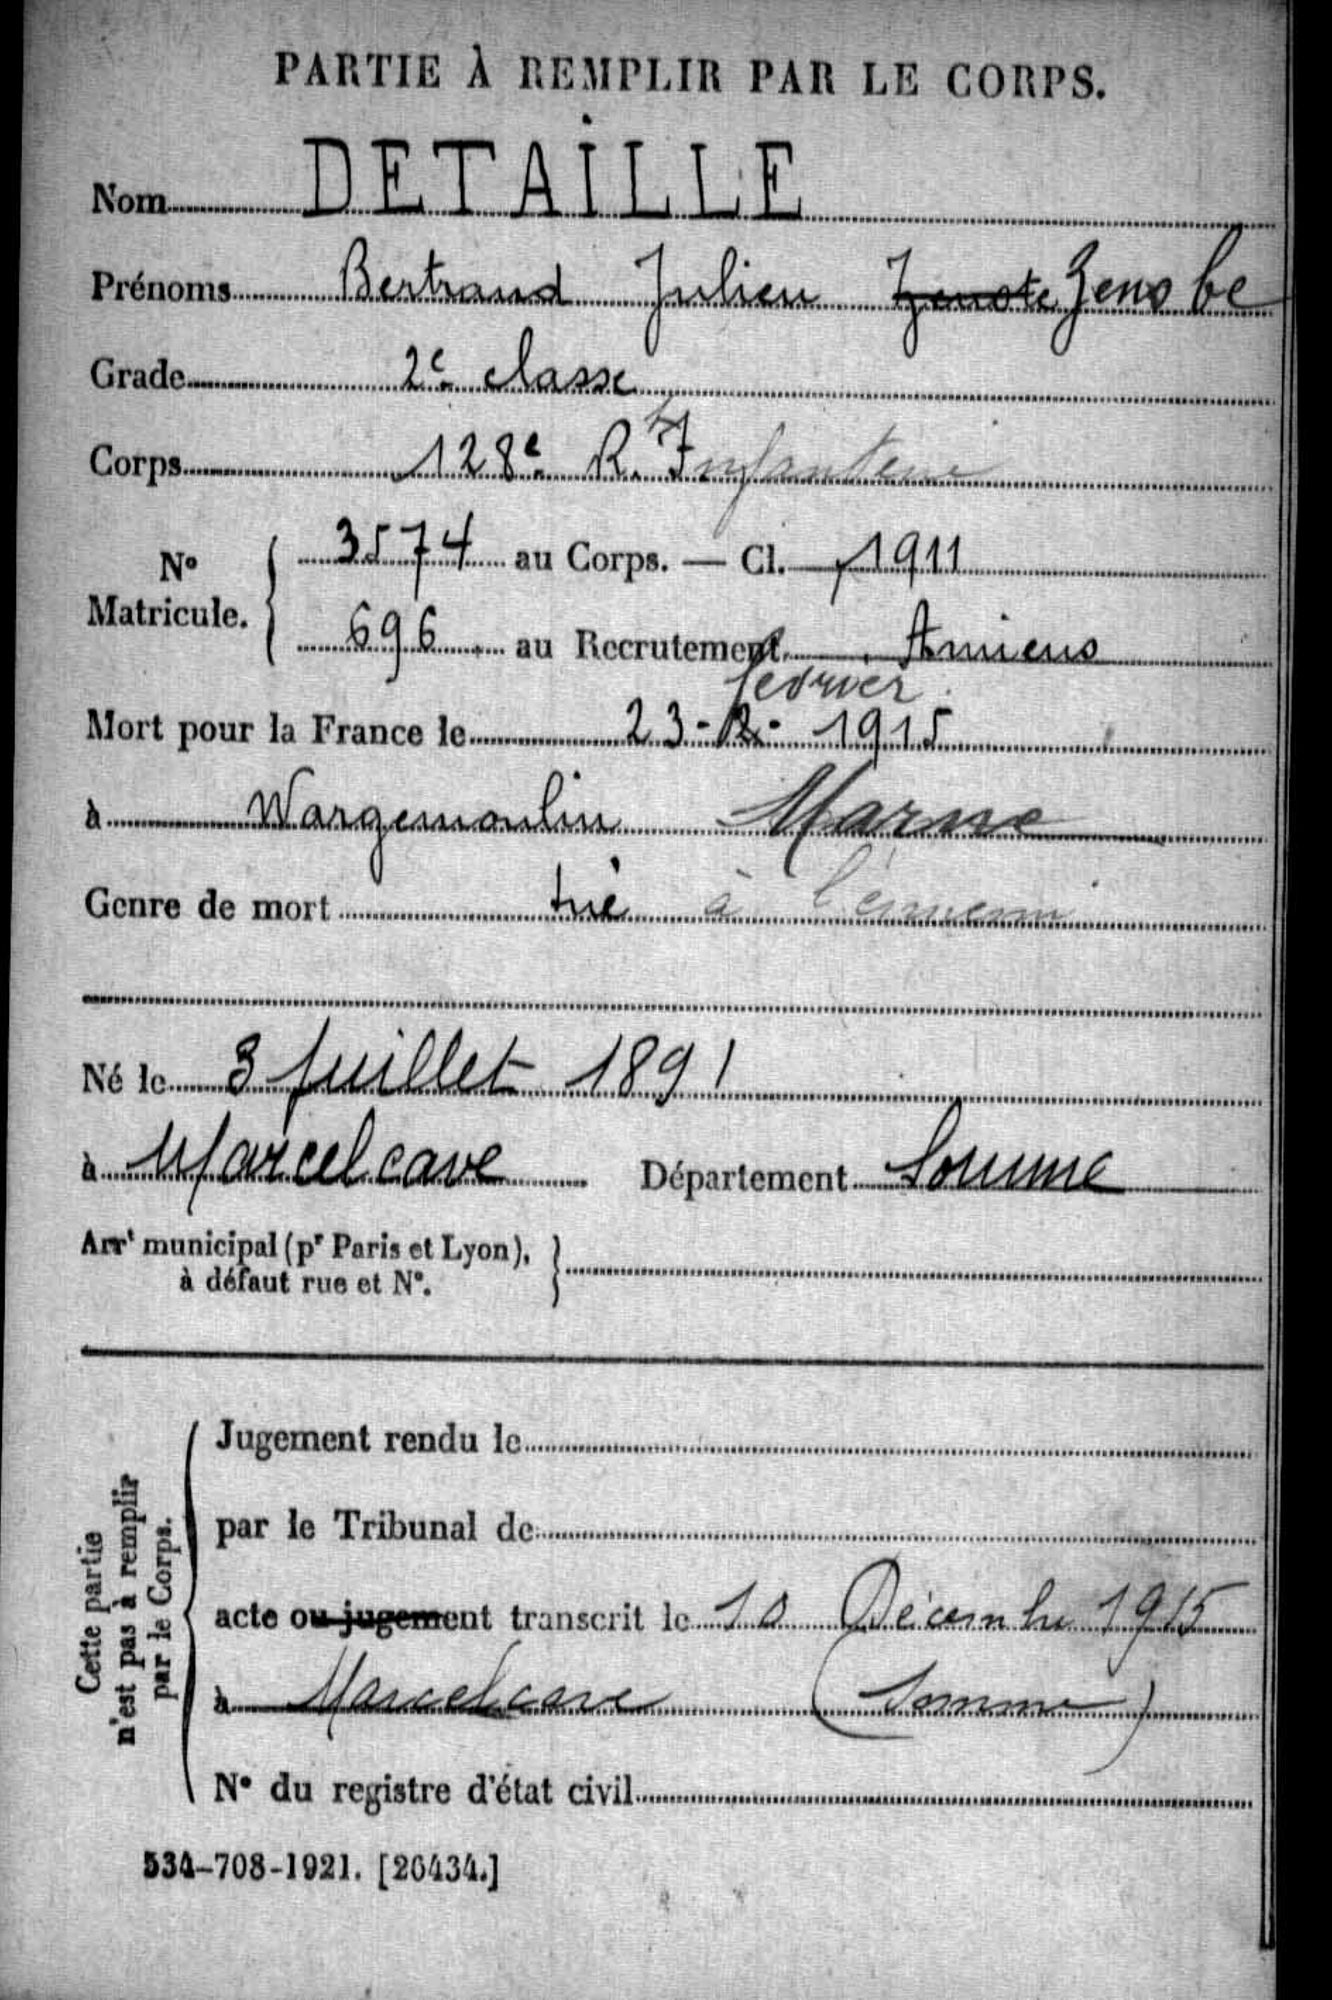 PARTIE À REMPLIR PAR LE CORPS.
Nom DETAILLE
Prénoms Bertrand Julien Zenobe
Grade 2e classe
Corps 128e R. Infanterie
N° Matricule. 3574 au Corps. — Cl. 1911
696 au Recrutement Amiens
février
Mort pour la France le 23-2-1915
à Wargemoulin Marne
Genre de mort tué à l'ennemi
Né le 3 Juillet 1891
à Marcelcave Département Somme
Arrt municipal (pr Paris et Lyon),
à défaut rue et N°.
Cette partie
n'est pas à remplir
par le Corps.
Jugement rendu le
par le Tribunal de
acte ou jugement transcrit le 10 Décembre 1915
à Marcelcave (Somme)
N° du registre d'état civil
534-708-1921. [26434.]